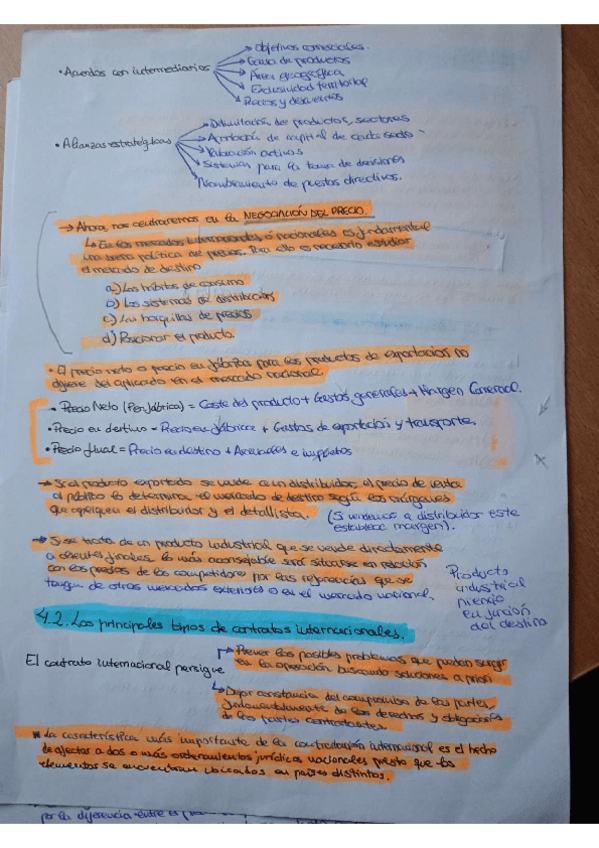 • Acuerdos con intermediarios
→ Objetivos comerciales.
→ Gama de productos
→ Área geográfica
→ Exclusividad territorial
→ Precios y descuentos
• Alianzas estratégicas
→ Delimitación de productos, sectores
→ Aportación de capital de cada socio
→ activos
→ Sistemas para la toma de decisiones
→ Nombramiento de puestos directivos.
→ Ahora, nos centraremos en la NEGOCIACIÓN DEL PRECIO.
↳ En los mercados internacionales o nacionales es fundamental
una buena política de precios. Para ello es necesario estudiar
el mercado de destino
a) Los hábitos de consumo
b) Los sistemas de distribución
c) Las horquillas de precios
d) Posicionar el producto.
• El precio neto o precio en fábrica para los productos de exportación no
difiere del aplicado en el mercado nacional.
• Precio Neto (Per fábrica) = Coste del producto + Gastos generales + Margen Comercial.
• Precio en destino = Precio en fábrica + Gastos de exportación y transporte.
• Precio final = Precio en destino + Aranceles e impuestos
→ Si el producto exportado se vende a un distribuidor, el precio de venta
al público lo determina el mercado de destino según los márgenes
que apliquen el distribuidor y el detallista.
(Si vendemos a distribuidor este
establece margen).
→ Si se trata de un producto industrial que se vende directamente
a clientes finales, lo más aconsejable será situarse en relación
con los precios de los competidores por las referencias que se
tengan de otros mercados exteriores o en el mercado nacional.
Producto
industrial
precio
en función
del destino
4.2. Los principales tipos de contratos internacionales.
El contrato internacional persigue
→ Prever los posibles problemas que puedan surgir
en la operación buscando soluciones a priori
↳ Dejar constancia del compromiso de las partes,
independientemente de los derechos y obligaciones
de las partes contratantes.
* La característica más importante de la contratación internacional es el hecho
de afectar a dos o más ordenamientos jurídicos nacionales presto que los
elementos se encuentran ubicados en países distintos.
por la diferencia entre el